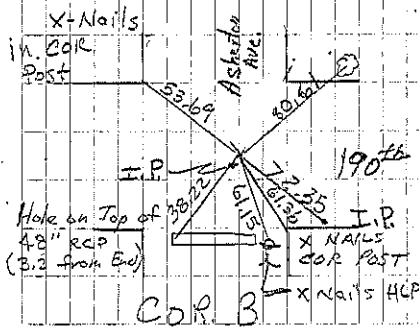 X-Nails
in COR
Post
Asherton
Ave.
53.69
80.61
190th
I.P.
38.22
61.15
61.36
72.35
Hole on Top of
48" RCP
(3.2 from End)
I.P.
X NAILS
COR POST
X Nails HLP
COR. 3